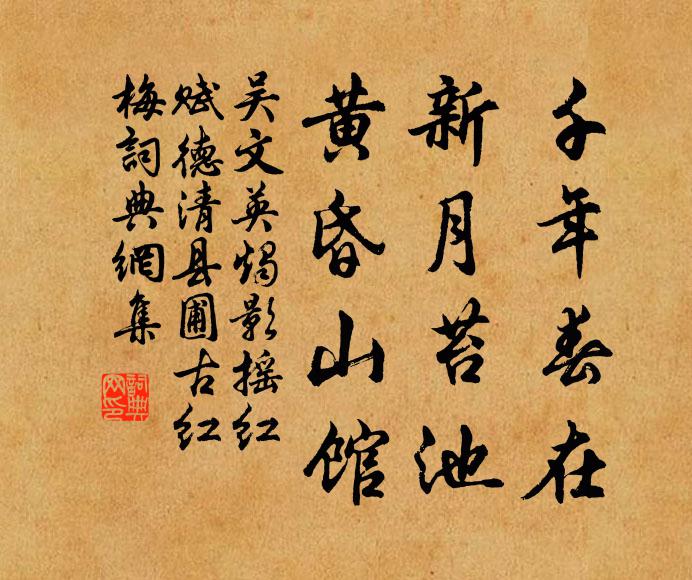 千年春在
新月苔池
黄昏山馆
吴文英燭影摇红
赋德清县圃古红
梅詞典網集
詞典
网印